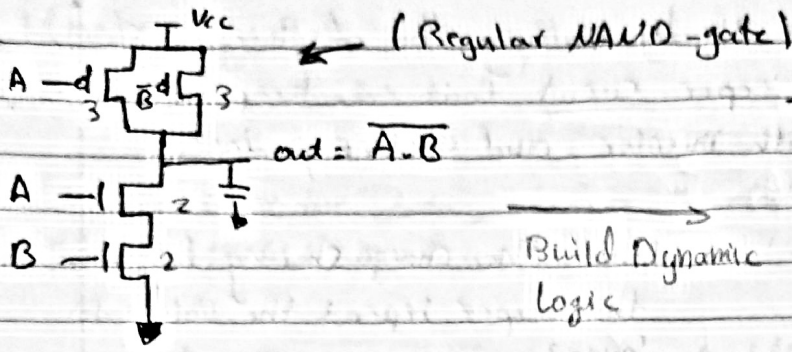 Vcc
(Regular NAND-gate)
A
3
B
3
out = \overline{A.B}
A
2
B
2
Build Dynamic
Logic